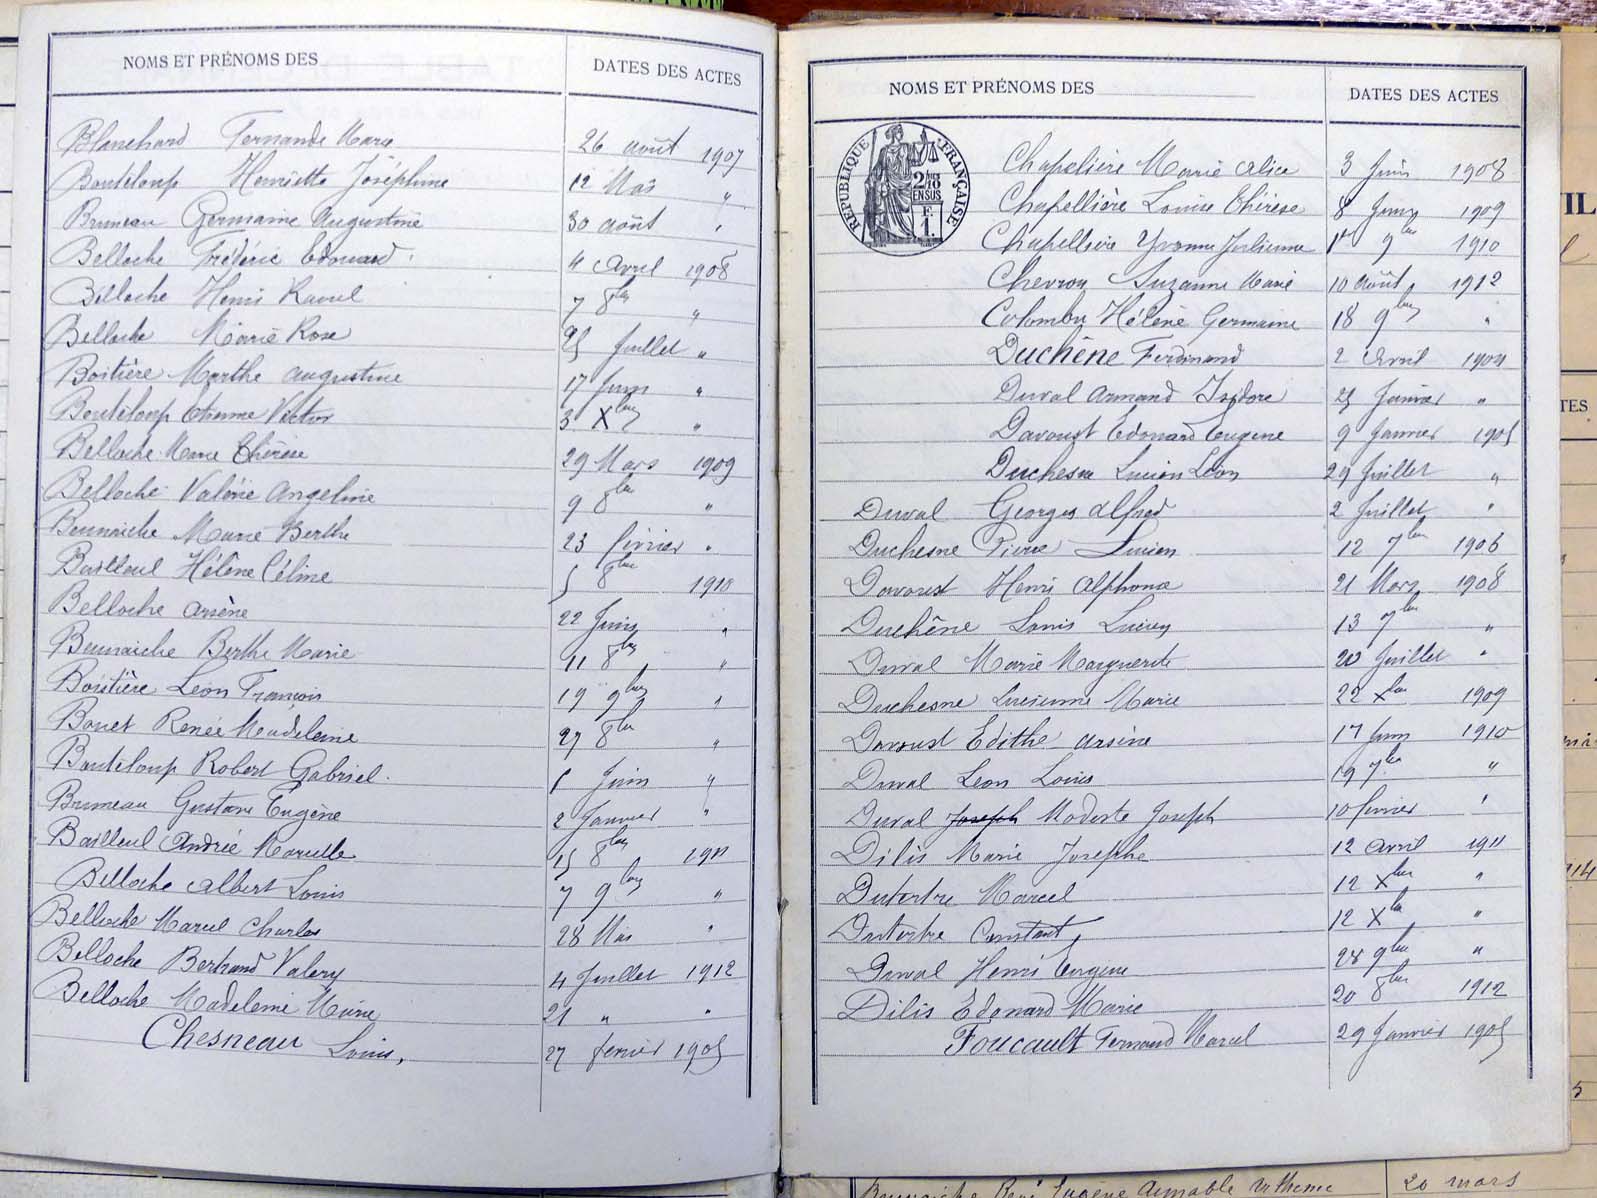 NOMS ET PRÉNOMS DES DATES DES ACTES
Blanchard Fernande Marie 26 août 1907
Boutéloup Henriette Joséphine 12 Mars "
Bruneau Germaine Augustine 30 août "
Belloche Frédéric Edouard 4 Avril 1908
Belloche Henri Raoul 7 8bre "
Belloche Marie Rose 25 Juillet "
Boitière Marthe Augustine 17 Juin "
Boutéloup Etienne Victor 3 Xbre "
Belloche Marie Thérèse 29 Mars 1909
Belloche Valérie Angeline 9 8bre "
Beunaiche Marie Berthe 23 février "
Bailleul Hélène Céline 5 8bre 1910
Belloche Arsène 22 Juin "
Beunaiche Berthe Marie 11 8bre "
Boistière Léon François 19 9bre "
Bouet Renée Madeleine 27 8bre "
Boutéloup Robert Gabriel 1 Juin "
Bruneau Gustave Eugène 2 Janvier "
Bailleul Andrée Marcelle 15 8bre 1911
Belloche Albert Louis 7 9bre "
Belloche Marcel Charles 28 Mai "
Belloche Bertrand Valery 4 Juillet 1912
Belloche Madeleine Marie 21 " "
Chesneau Louis, 27 février 1905
NOMS ET PRÉNOMS DES DATES DES ACTES
RÉPUBLIQUE FRANÇAISE
2/10 EN SUS
F. 1.
Chapelière Marie Alice 3 Juin 1908
Chapellière Louise Thérèse 8 1909
Chapellière Yvonne Julienne 1er 9bre 1910
Chevron Suzanne Marie 10 août 1912
Colombu Hélène Germaine 18 9bre "
Duchêne Ferdinand 2 Avril 1904
Duval Armand Isidore 25 Janvier "
Davoust Edouard Eugène 9 Janvier 1905
Duchesne Lucien Léon 29 Juillet "
Duval Georges Alfred 2 Juillet "
Duchesne Pierre Lucien 12 7bre 1906
Davoust Henri Alphonse 21 Mars 1908
Duchêne Louis Lucien 13 7bre "
Duval Marie Marguerite 20 Juillet "
Duchesne Lucienne Marie 22 Xbre 1909
Davoust Edithe Arsène 17 Juin 1910
Duval Léon Louis 19 7bre "
Duval Joseph Modeste Joseph 10 février "
Dilis Marie Josèphe 12 Avril 1911
Dutertre Marcel 12 Xbre "
Dutertre Constant 12 Xbre "
Duval Henri Eugène 28 9bre "
Dilis Edouard Marie 20 8bre 1912
Foucault Fernand Marcel 29 Janvier 1905
20 mars